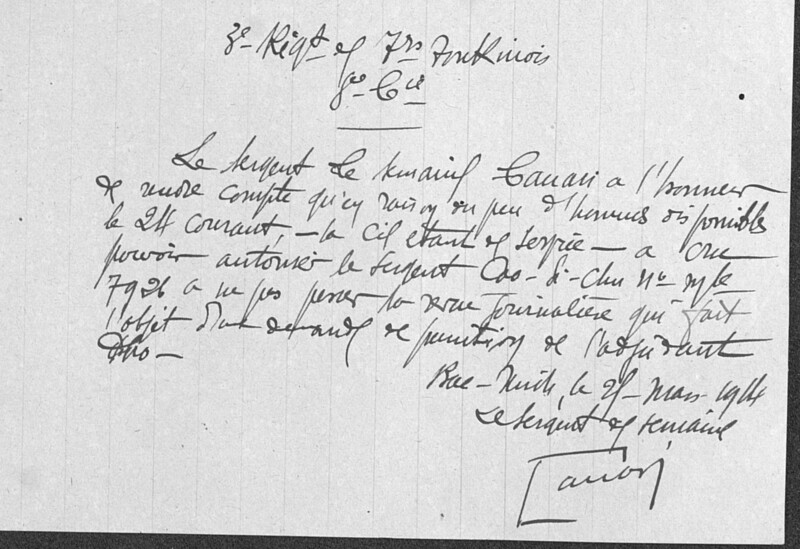 3e Régt de Trs Tonkinois
8e Cie
Le sergent de semaine Canari a l'honneur
de rendre compte qu'en raison du peu d'hommes disponibles
le 24 courant, – la Cie étant de service – a cru
pouvoir autoriser le sergent Cao-Di-Chu No mle
7926 à ne pas passer la revue journalière qui fait
l'objet d'une demande de punition de l'adjudant
Bac-Ninh, le 25 Mars 1914
Le sergent de semaine
Canari